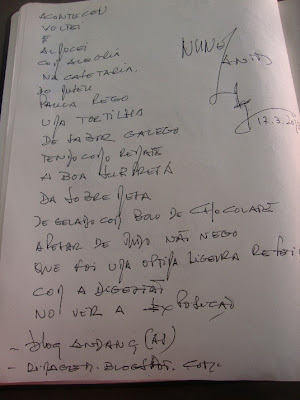 ACONTECEU
VOLTEI
E
ALMOCEI
COM ALEGRIA
NA CAFETARIA
DO MUSEU
PAULA REGO
UMA TORTILHA
DE SABOR GALEGO
TENDO COMO REMATE
A BOA SURPRESA
DA SOBREMESA
DE GELADO COM BOLO DE CHOCOLATE
APESAR DE TUDO NÃO NEGO
QUE FOI UMA OPTIMA LIGEIRA REFEIÇ
COM A DIGESTÃO
NO VER A EXPOSIÇÃO
- blog ANDANÇ(AS)
- .BLOGSPOT.COM
NUNO
17.3.20